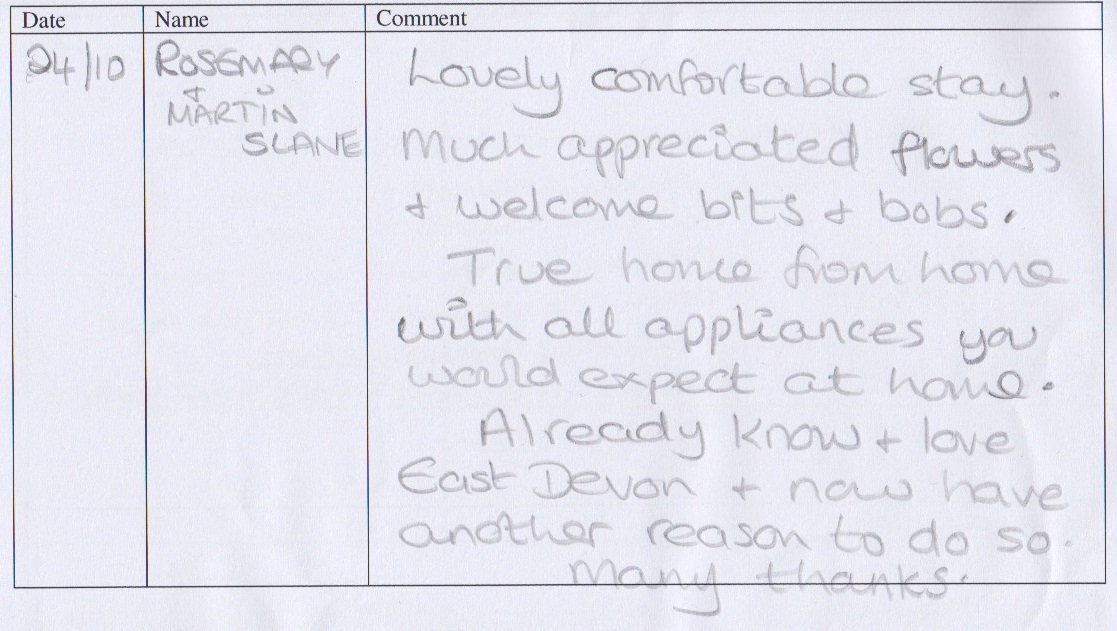 Date Name Comment
24/10 ROSEMARY
+
MARTIN
SLANE
Lovely comfortable stay.
Much appreciated flowers
+ welcome bits + bobs.
True home from home
with all appliances you
would expect at home.
Already know + love
East Devon + now have
another reason to do so.
Many thanks.